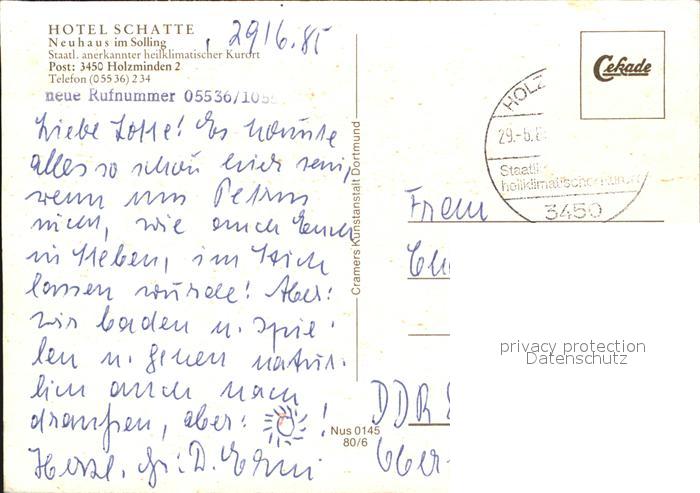 HOTEL SCHATTE
Neuhaus im Solling
Staatl. anerkannter heilklimatischer Kurort
Post: 3450 Holzminden 2
Telefon (05536) 234
neue Rufnummer 05536/105
29/6.85
Liebe Lotte! Es könnte
alles so schön hier sein,
wenn uns Petrus
nicht, wie auch Euch
in Stich
lassen würde! Aber:
wir baden u. spie-
len u. gehen natür-
lich auch nach
draußen, aber: !
Herzl. Gr. : D. Erni
Cramers Kunstanstalt Dortmund
Nus 0145
80/6
Cekade
HOLZ
29.-6.8
Staatl.
heilklimatischer Kurort
3450
Frau
DDR
privacy protection
Datenschutz